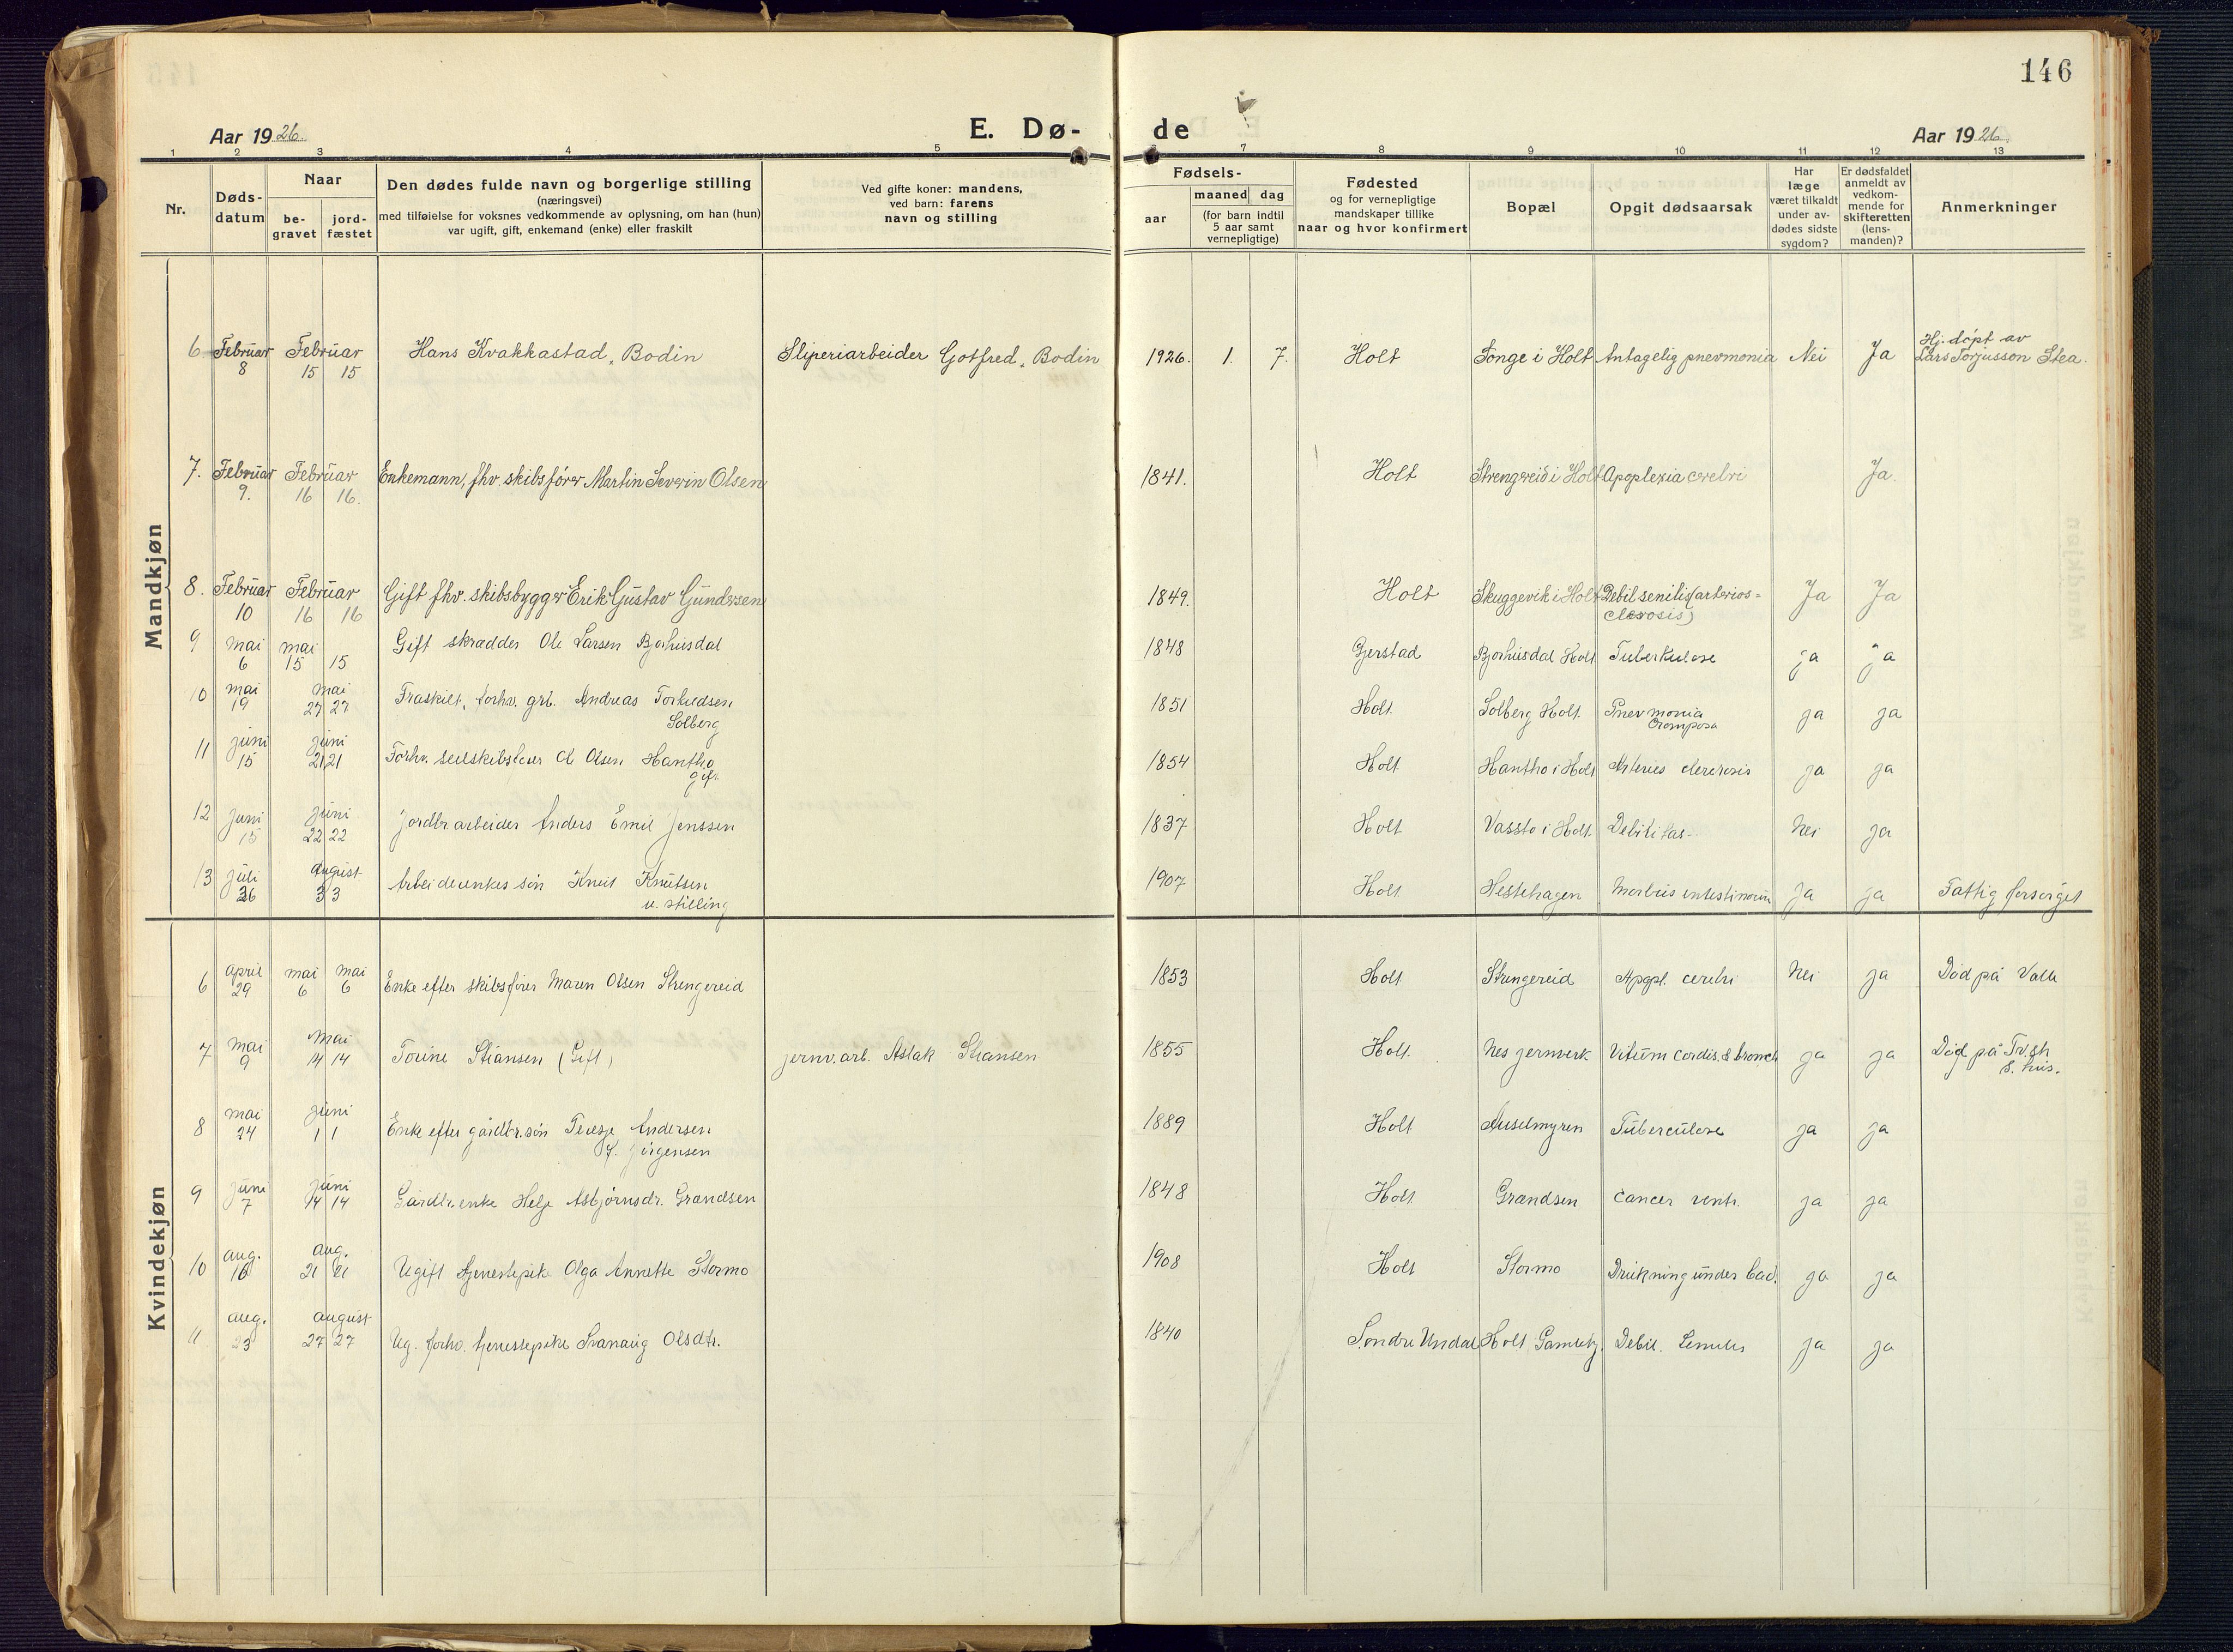 146
Aar 1926.
E. Dø-
de
Aar 1926.
1 2 3 4 5 6 7 8 9 10 11 12 13
Nr.
Døds-
datum
Naar
be-
gravet
jord-
fæstet
Den dødes fulde navn og borgerlige stilling
(næringsvei)
med tilføielse for voksnes vedkommende av oplysning, om han (hun)
var ugift, gift, enkemand (enke) eller fraskilt
Ved gifte koner: mandens,
ved barn: farens
navn og stilling
Fødsels-
aar
maaned
dag
(for barn indtil
5 aar samt
vernepligtige)
Fødested
og for vernepligtige
mandskaper tillike
naar og hvor konfirmert
Bopæl
Opgit dødsaarsak
Har
læge
været tilkaldt
under av-
dødes sidste
sygdom?
Er dødsfaldet
anmeldt av
vedkom-
mende for
skifteretten
(lens-
manden)?
Anmerkninger
Mandkjøn
6 Februar Februar Hans Kvakkastad, Bodin Sliperiarbeider Gotfred, Bodin 1926. 1. 7. Holt Songe i Holt Antagelig pnevmonia Nei Ja Hj. døpt av
8 15 15 Lars Torjusson Stea.
7. Februar Februar Enkemann, fhv. skibsfører Martin Severin Olsen 1841. Holt Strengereid i Holt Apoplexia cerebri Ja.
9. 16 16.
8. Februar Februar Gift fhv. skibsbygger Erik Gustav Gundersen 1849. Holt Skuggevik i Holt Debil senilis (arterios=
10 16 16 clerosis) Ja Ja
9 mai mai Gift skrædder Ole Larsen Bjorhusdal 1848 Gjerstad Bjorhusdal Holt Tuberkulose ja ja
6 15 15
10 mai mai Fraskilt, forhv. grb. Andreas 1851 Holt Solberg Holt. Pnevmonia ja ja
19 27 27 Solberg
11 juni juni Forhv. Olsen Hantho 1854 Holt Hantho i Holt ja ja
15 21 21 Gift
12 juni juni Jordbr arbeider Anders Emil Jenssen 1837 Holt Vassto i Holt. Debilitas - Nei ja
15 22 22
13 juli august Arbeiderenkes søn Knut Knutsen 1907 Holt Hestehagen Morbus intestinorum ja ja Fattig forsørget
26 3 3 u. stilling
Kvindekjøn
6 april mai mai Enke efter skibsfører Maren Olsen Strengereid 1853 Holt Strengereid Apopl. cerebri Nei ja Død på Valle
29 6 6
7 mai mai Torine Stiansen (Gift) jernv.arb. Aslak Stiansen 1855 Holt. Nes jernverk Vitium cordis. & bronch ja ja Død på Tv.str
9 14 14 s. hus.
8 mai juni Enke efter gårdbr.søn Terese Andersen 1889 Holt Auselmyren Tuberculose ja ja
24 1 1 f. Jörgensen
9 juni juni Gårdbr.enke Helje Asbjørnsdr. Grandsen 1848 Holt Grandsen Cancer ventr. ja ja
7 14 14
10 aug. aug. Ugift tjenestepike Olga Annette Stormo 1908 Holt Stormo Drukning under bad. ja ja
16 21 21
11 aug. august Ug. forhv. tjenestepike Olsdtr. 1840 Søndre Undal Holt Debil. Senilis ja ja
23 27 27